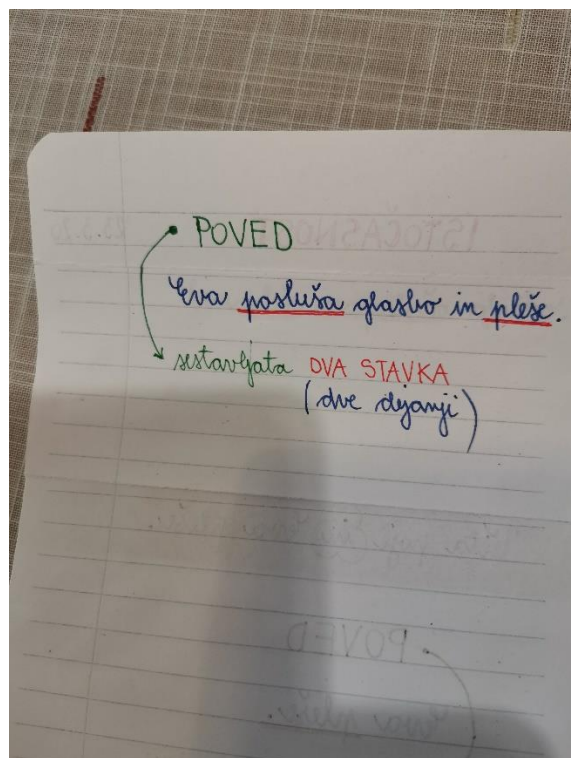 • POVED
Eva posluša glasbo in pleše.
sestavljata DVA STAVKA
(dve dejanji)
POVED